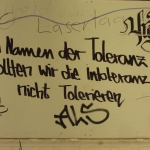 Lasertag
Namen der Toleranz
ollten wir die Intoleranz
nicht Tolerieren
ALS